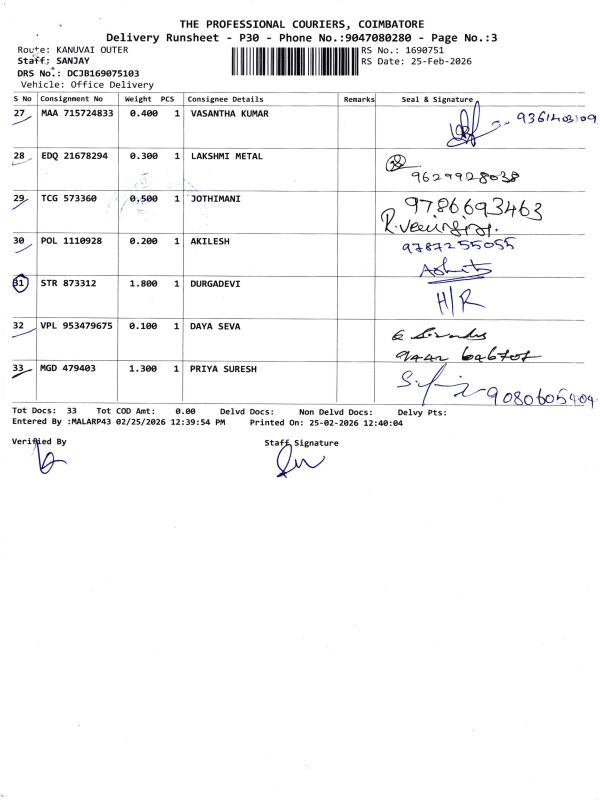 THE PROFESSIONAL COURIERS, COIMBATORE
Delivery Runsheet - P30 - Phone No.:9047080280 - Page No.:3
Route: KANUVAI OUTER
RS No.: 1690751
Staff: SANJAY
RS Date: 25-Feb-2026
DRS No.: DCJB169075103
Vehicle: Office Delivery
S No Consignment No Weight PCS Consignee Details Remarks Seal & Signature
27 MAA 715724833 0.400 1 VASANTHA KUMAR
28 EDQ 21678294 0.300 1 LAKSHMI METAL 9629928038
29 TCG 573360 0.500 1 JOTHIMANI 9786693463
30 POL 1110928 0.200 1 AKILESH 9787255055
31 STR 873312 1.800 1 DURGADEVI H/R
32 VPL 953479675 0.100 1 DAYA SEVA
33 MGD 479403 1.300 1 PRIYA SURESH 9080605904
Tot Docs: 33 Tot COD Amt: 0.00 Delvd Docs: Non Delvd Docs: Delvy Pts:
Entered By :MALARP43 02/25/2026 12:39:54 PM Printed On: 25-02-2026 12:40:04
Verified By Staff Signature